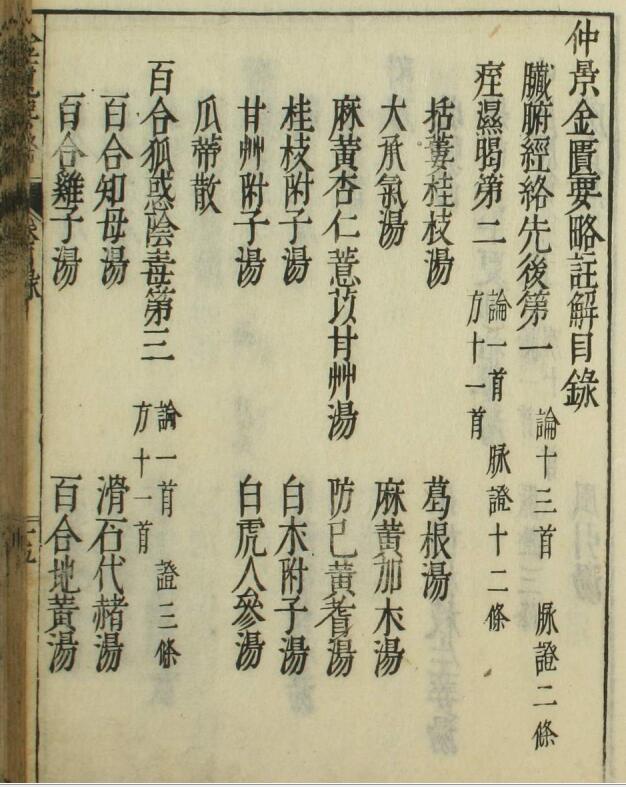 仲景金匱要略註解目錄
臟腑經絡先後第一 論十三首 脉證二條
痓濕暍第二 論一首 脉證十二條
方十一首
栝蔞桂枝湯 葛根湯
大承氣湯 麻黃加朮湯
麻黃杏仁薏苡甘艸湯 防已黃耆湯
桂枝附子湯 白朮附子湯
甘艸附子湯 白虎人參湯
瓜蒂散
百合狐惑陰毒第三 論一首 證三條
方十一首
百合知母湯 滑石代赭湯
百合雞子湯 百合地黃湯